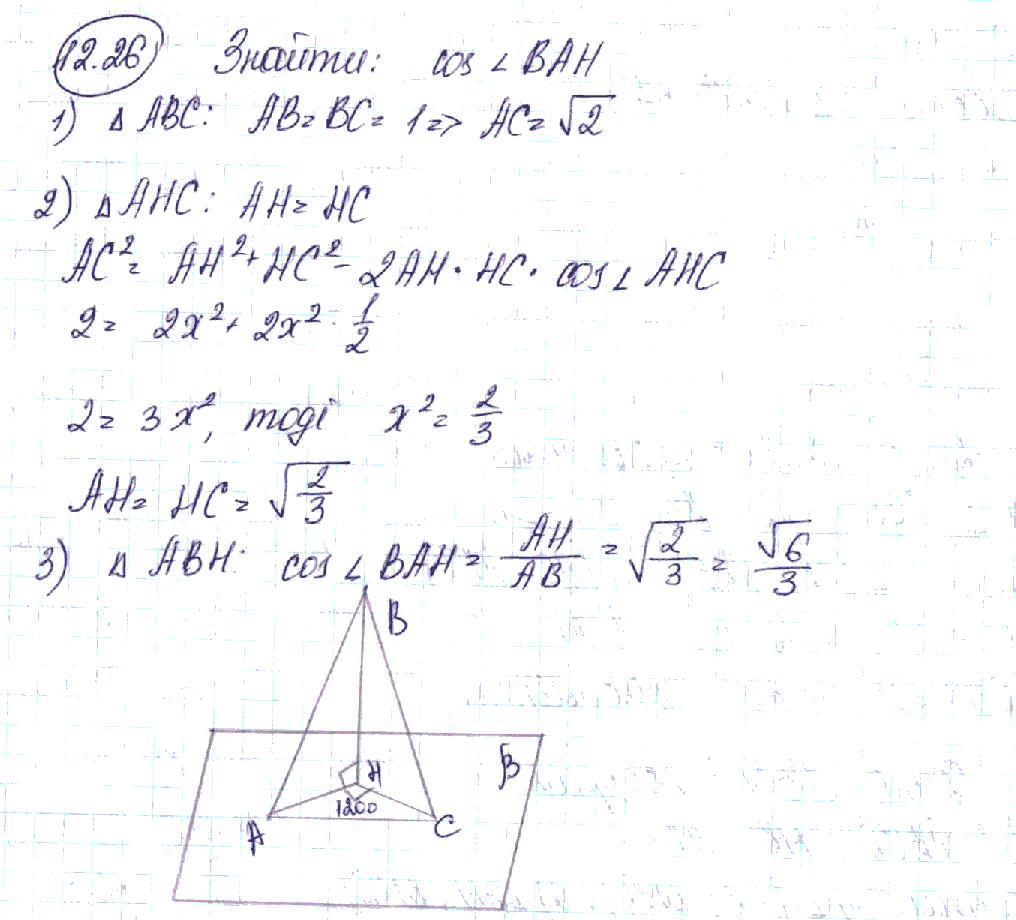 12.26 Знайти: cos ∠ BAH
1) Δ ABC: AB = BC = 1 => AC = √2
2) Δ AHC: AH = HC
AC² = AH² + HC² - 2AH · HC · cos ∠ AHC
2 = 2x² + 2x² · 1/2
2 = 3x², тоді x² = 2/3
AH = HC = √(2/3)
3) Δ ABH: cos ∠ BAH = AH/AB = √(2/3) = √6/3
B
β
H
1200
A C